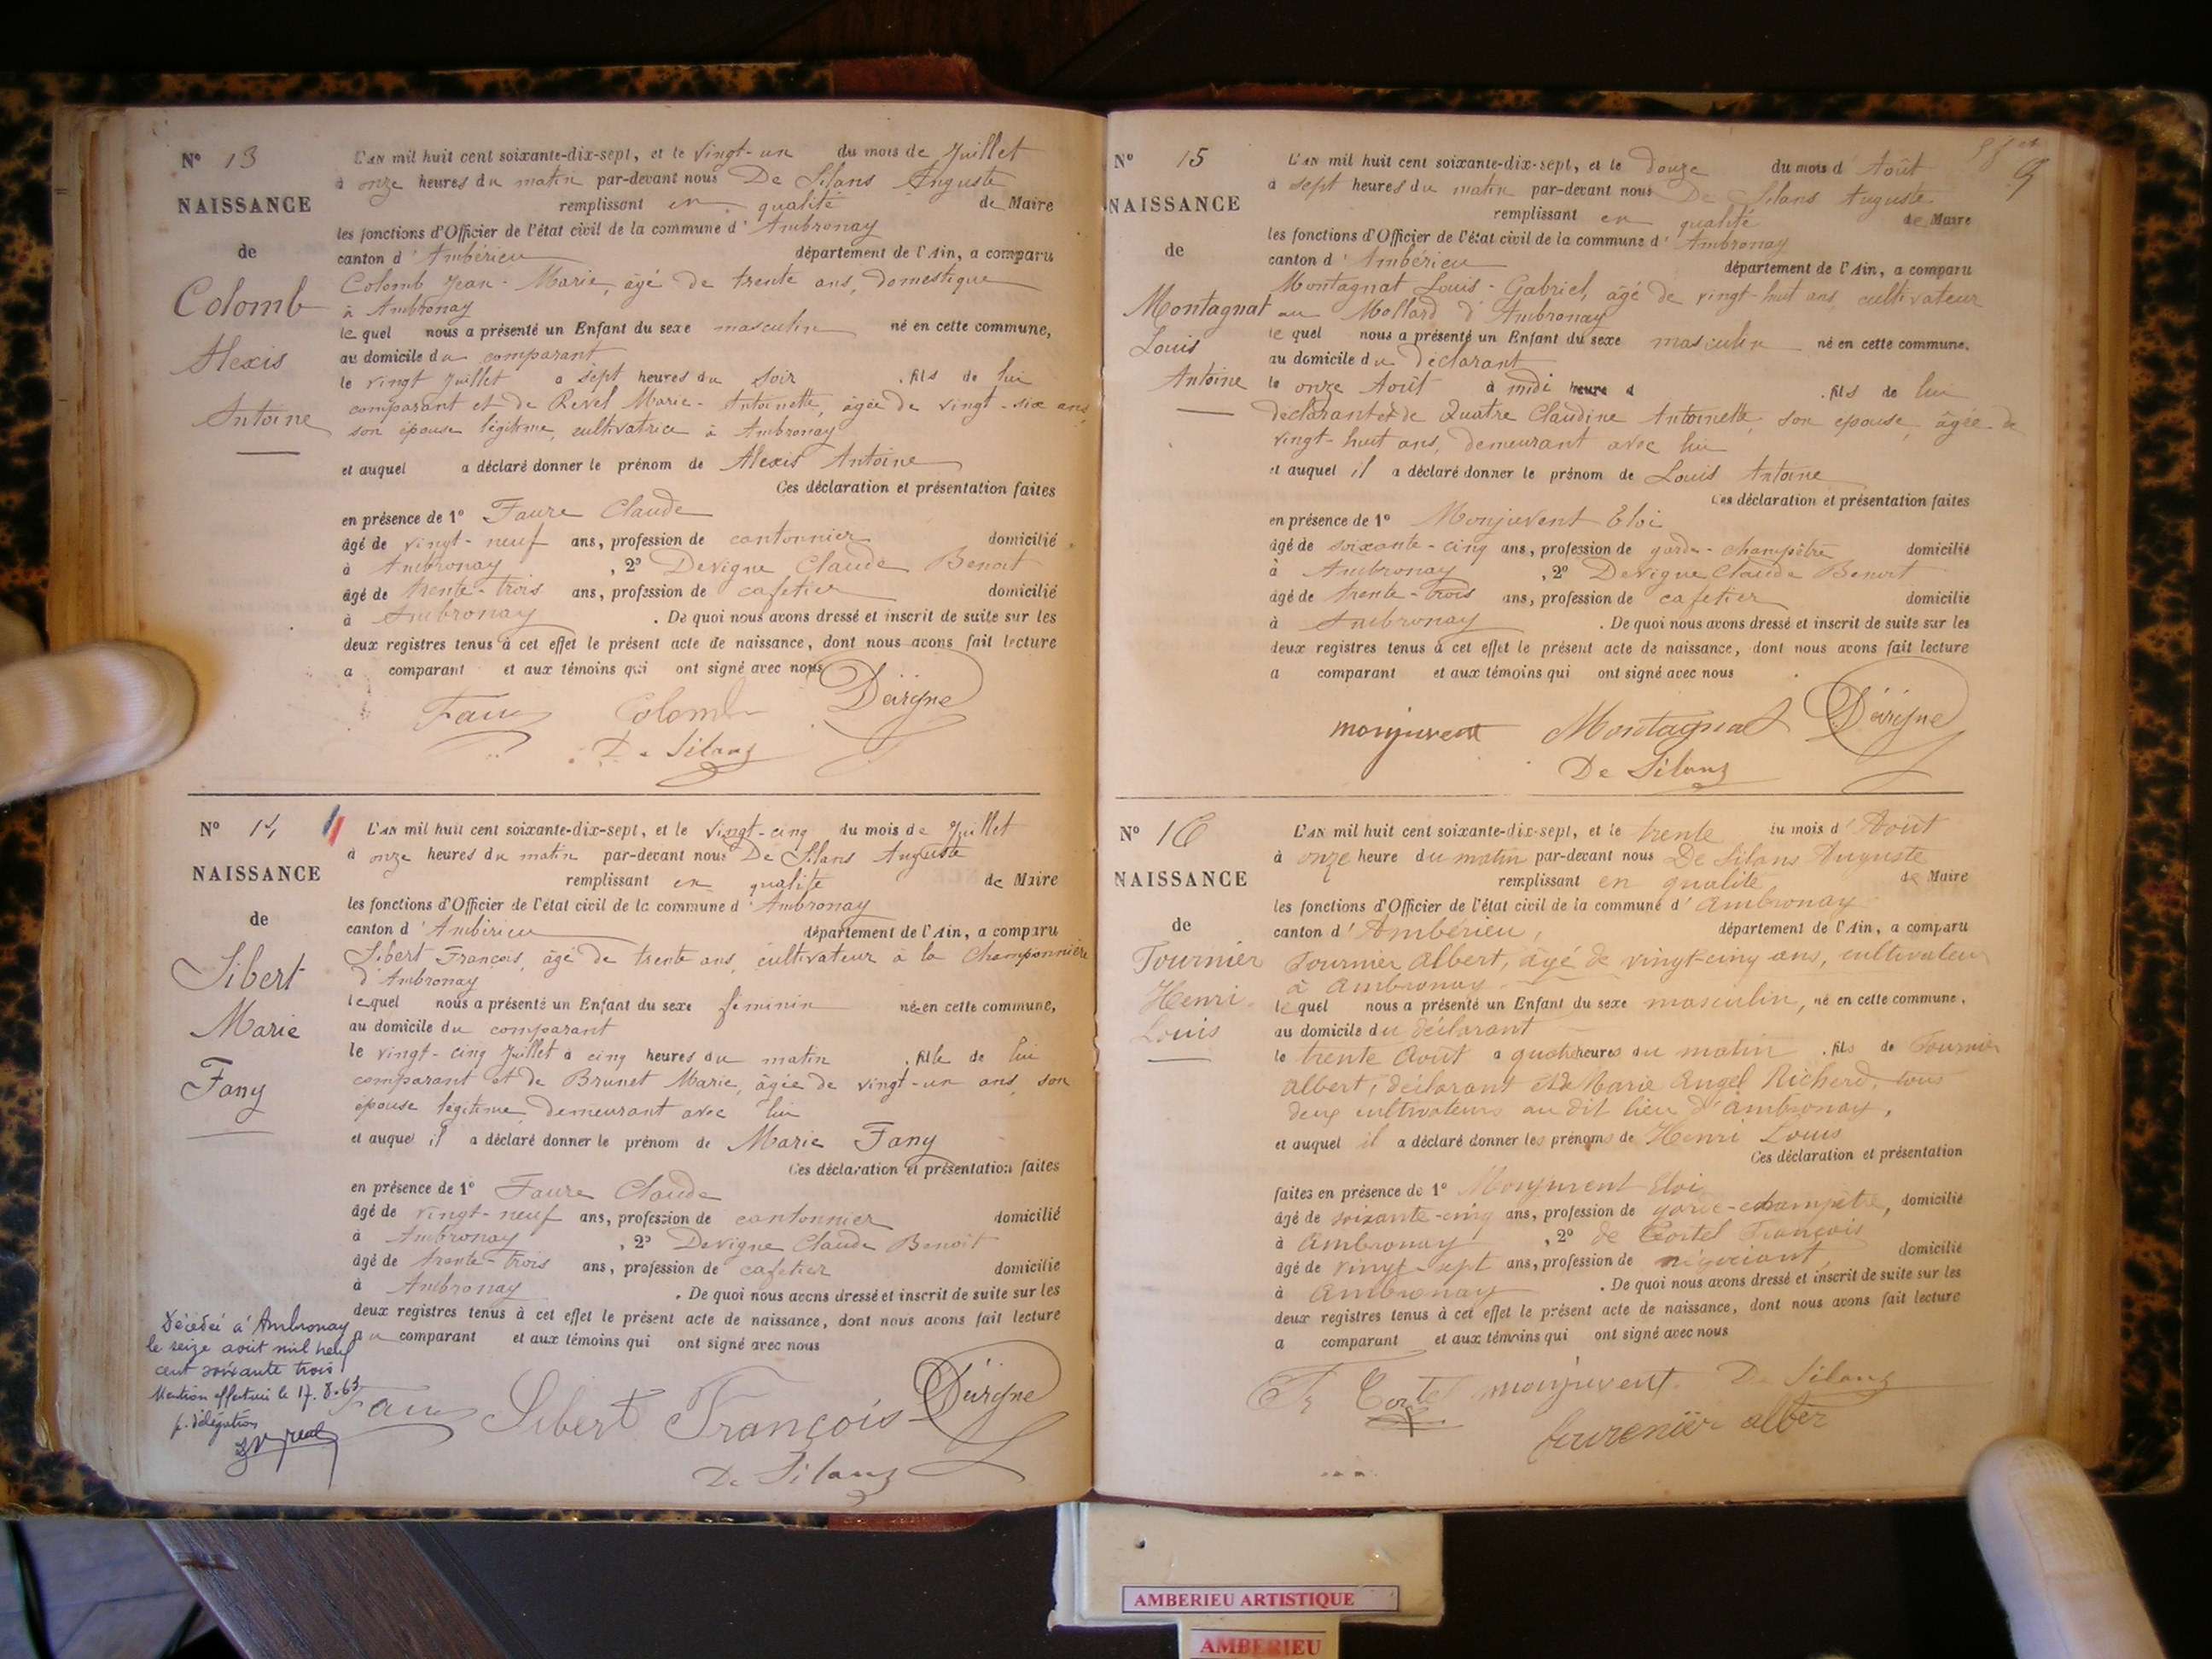 N° 13
NAISSANCE
de
Colomb
Alexis
Antoine
L'AN mil huit cent soixante-dix-sept, et le vingt-un du mois de Juillet
à onze heures du matin par-devant nous De Silans Auguste
remplissant en qualité de Maire
les fonctions d'Officier de l'état civil de la commune d'Ambronay
canton d'Ambérieu département de l'Ain, a comparu
Colomb Jean-Marie, âgé de trente ans, domestique
à Ambronay
lequel nous a présenté un Enfant du sexe masculin né en cette commune,
au domicile du comparant
le vingt Juillet à sept heures du soir, fils de lui
comparant et de Revel Marie-Antoinette, âgée de vingt-six ans,
son épouse légitime, cultivatrice à Ambronay
et auquel a déclaré donner le prénom de Alexis Antoine
Ces déclaration et présentation faites
en présence de 1° Faure Claude
âgé de vingt-neuf ans, profession de cantonnier domicilié
à Ambronay, 2° Devigne Claude Benoit
âgé de trente-trois ans, profession de cafetier domicilié
à Ambronay. De quoi nous avons dressé et inscrit de suite sur les
deux registres tenus à cet effet le présent acte de naissance, dont nous avons fait lecture
a comparant et aux témoins qui ont signé avec nous
Faure Colomb Devigne
De Silans
N° 14
NAISSANCE
de
Sibert
Marie
Fany
L'AN mil huit cent soixante-dix-sept, et le vingt-cinq du mois de Juillet
à onze heures du matin par-devant nous De Silans Auguste
remplissant en qualité de Maire
les fonctions d'Officier de l'état civil de la commune d'Ambronay
canton d'Ambérieu département de l'Ain, a comparu
Sibert François, âgé de trente ans, cultivateur à la Championnière
d'Ambronay
lequel nous a présenté un Enfant du sexe féminin née en cette commune,
au domicile du comparant
le vingt-cinq Juillet à cinq heures du matin, fille de lui
comparant et de Brunet Marie, âgée de vingt-un ans, son
épouse légitime, demeurant avec lui
et auquel il a déclaré donner le prénom de Marie Fany
Ces déclaration et présentation faites
en présence de 1° Faure Claude
âgé de vingt-neuf ans, profession de cantonnier domicilié
à Ambronay, 2° Devigne Claude Benoit
âgé de trente-trois ans, profession de cafetier domicilié
à Ambronay. De quoi nous avons dressé et inscrit de suite sur les
deux registres tenus à cet effet le présent acte de naissance, dont nous avons fait lecture
au comparant et aux témoins qui ont signé avec nous
Décédée à Ambronay
le seize août mil neuf
cent soixante trois
Mention effectuée le 17.8.63
p. délégation
Faure Sibert François Devigne
De Silans
N° 15
NAISSANCE
de
Montagnat
Louis
Antoine
L'AN mil huit cent soixante-dix-sept, et le douze du mois d'Août
à sept heures du matin par-devant nous De Silans Auguste
remplissant en qualité de Maire
les fonctions d'Officier de l'état civil de la commune d'Ambronay
canton d'Ambérieu département de l'Ain, a comparu
Montagnat Louis-Gabriel, âgé de vingt-huit ans, cultivateur
au Mollard d'Ambronay
lequel nous a présenté un Enfant du sexe masculin né en cette commune.
au domicile du déclarant
le onze Août à midi heure d, fils de lui
déclarant et de Quatre Claudine Antoinette son épouse, âgée de
vingt-huit ans, demeurant avec lui
et auquel il a déclaré donner le prénom de Louis Antoine
Ces déclaration et présentation faites
en présence de 1° Monjuvent Eloi
âgé de soixante-cinq ans, profession de garde-champêtre domicilié
à Ambronay, 2° Devigne Claude Benoit
âgé de trente-trois ans, profession de cafetier domicilié
à Ambronay. De quoi nous avons dressé et inscrit de suite sur les
deux registres tenus à cet effet le présent acte de naissance, dont nous avons fait lecture
a comparant et aux témoins qui ont signé avec nous
monjuvent Montagnat Devigne
De Silans
N° 16
NAISSANCE
de
Fournier
Henri
Louis
L'AN mil huit cent soixante-dix-sept, et le trente du mois d'Août
à onze heure du matin par-devant nous De Silans Auguste
remplissant en qualité de Maire
les fonctions d'Officier de l'état civil de la commune d'Ambronay
canton d'Ambérieu, département de l'Ain, a comparu
Fournier Albert, âgé de vingt-cinq ans, cultivateur
à Ambronay
lequel nous a présenté un Enfant du sexe masculin, né en cette commune.
au domicile du déclarant
le trente Août à quatre heures du matin, fils de Fournier
Albert, déclarant et de Marie Angel Richerd, tous
deux cultivateurs au dit lieu d'Ambronay,
et auquel il a déclaré donner les prénoms de Henri Louis
Ces déclaration et présentation
faites en présence de 1° Monjuvent Eloi
âgé de soixante-cinq ans, profession de garde-champêtre, domicilié
à Ambronay, 2° de Cortel François
âgé de vingt-sept ans, profession de négociant, domicilié
à Ambronay. De quoi nous avons dressé et inscrit de suite sur les
deux registres tenus à cet effet le présent acte de naissance, dont nous avons fait lecture
a comparant et aux témoins qui ont signé avec nous
monjuvent De Silans
AMBERIEU ARTISTIQUE
AMBERIEU